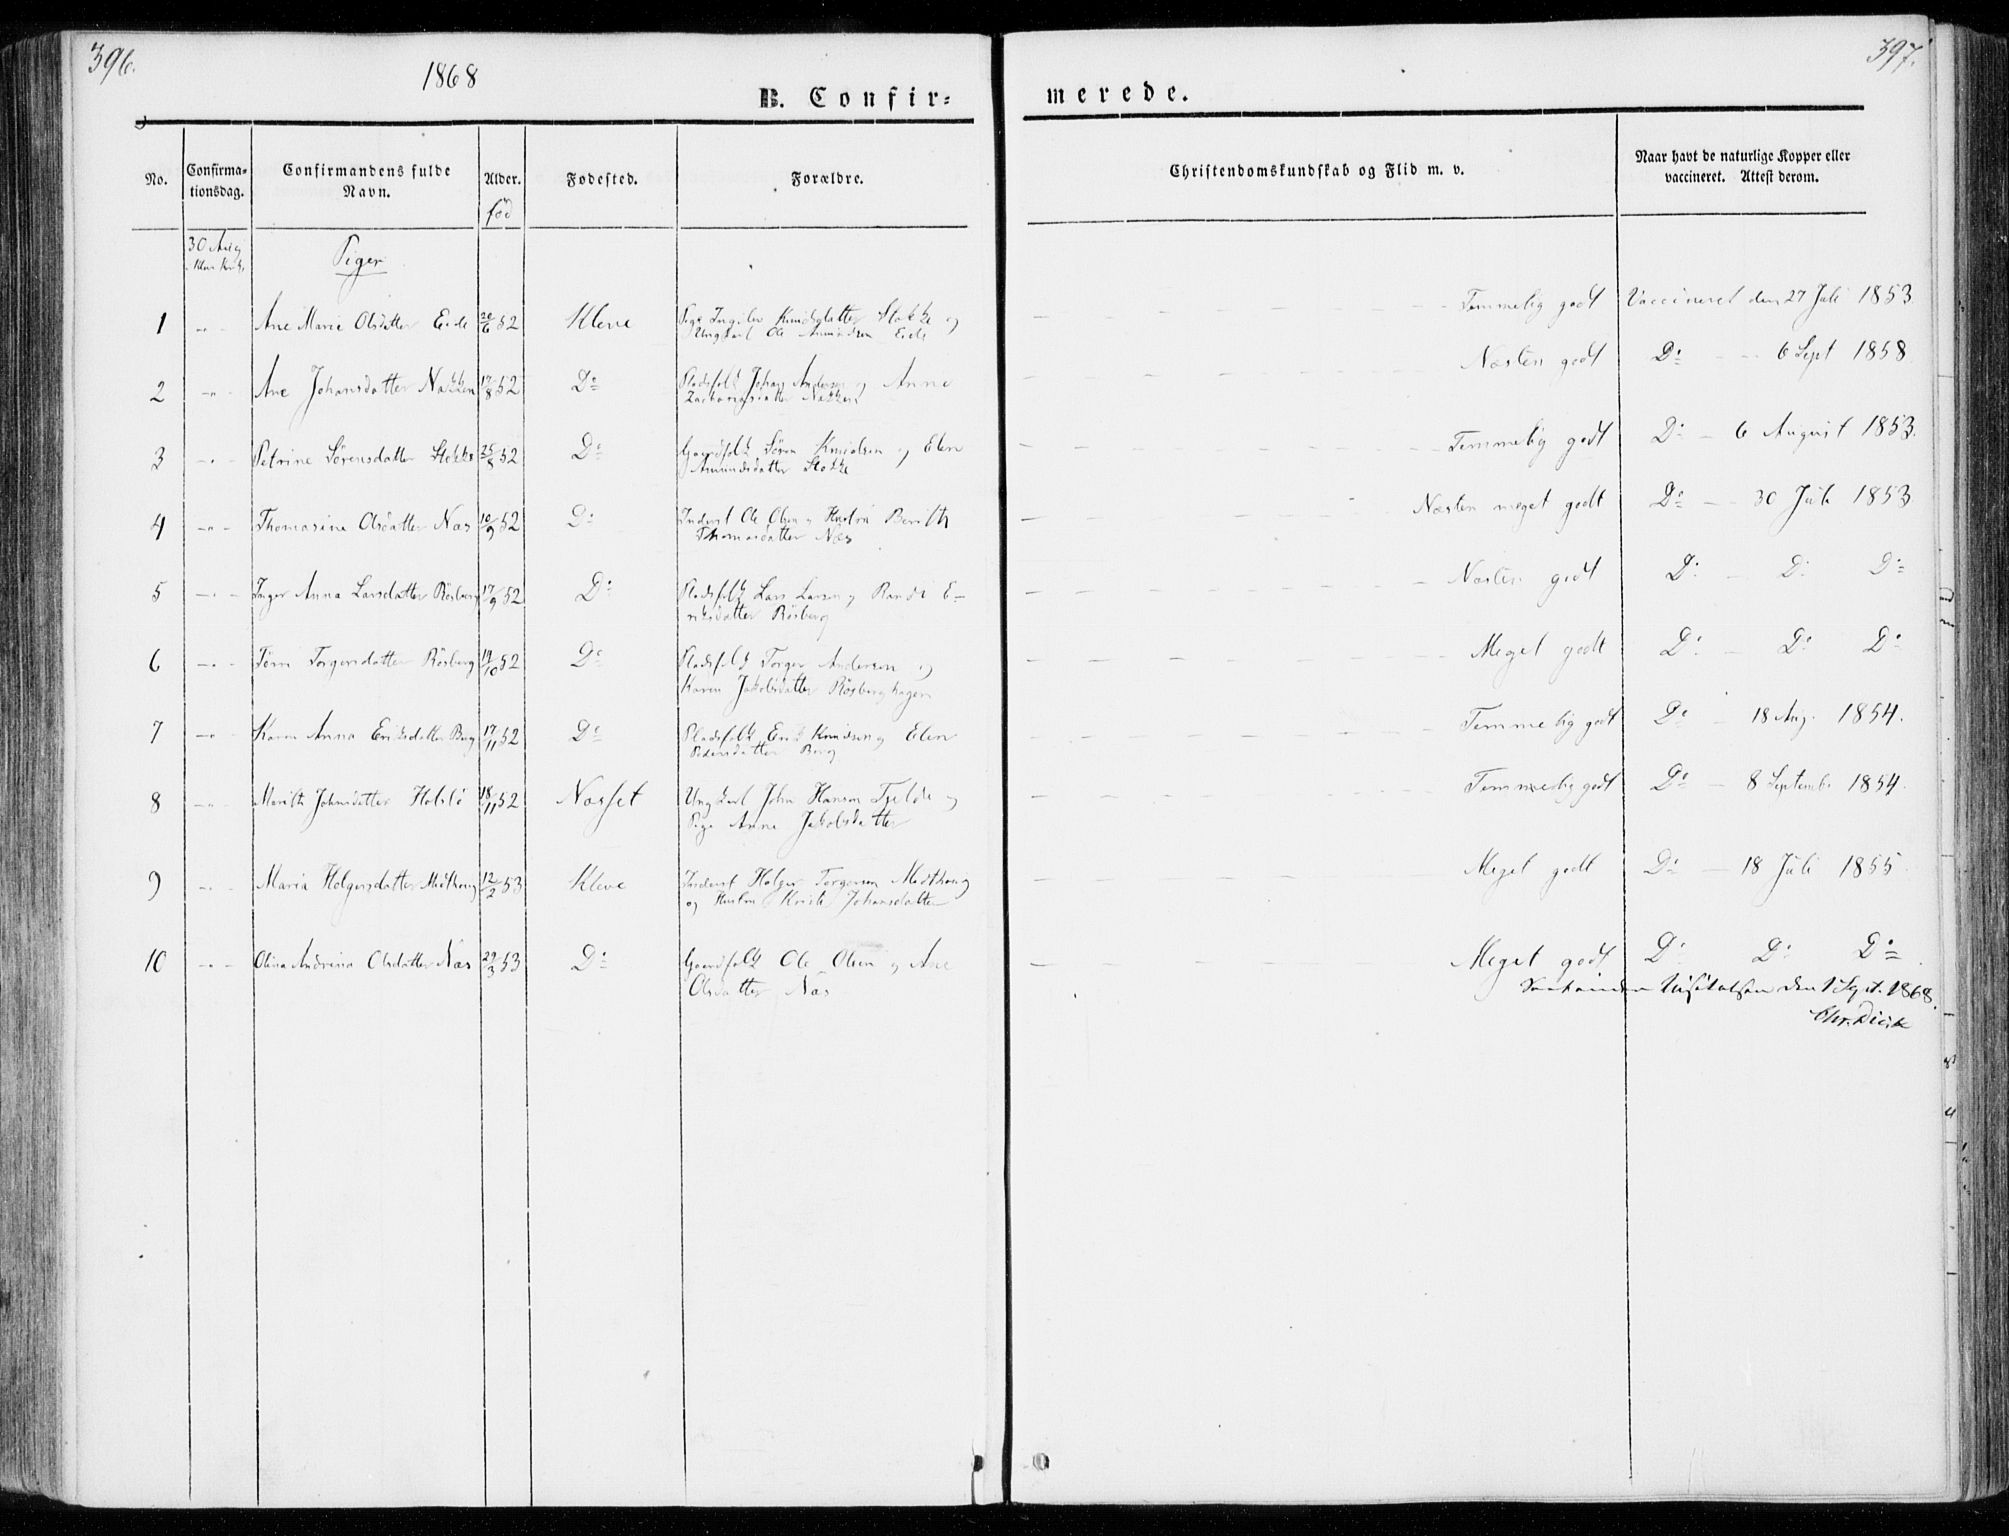 396.
1868
B. Confir=
merede.
397.
No. Confirmationsdag. Confirmandens fulde Navn. Alder. Fødested. Forældre. Christendomskundskab og Flid m. v. Naar havt de naturlige Kopper eller vaccineret. Attest derom.
fød
30 Aug
Piger
1 Ane Marie Olsdatter Eide 20/6 52 Kleve Pige Ingeber Knudsdatter Stokke og Ungkarl Ole Amundsen Eide Temmelig godt Vaccineret den 27 Juli 1853
2 Ane Johansdatter Nakken 17/8 52 Do Pladsfolk Johan Andersen og Anne Zachariasdatter Nakken Næsten godt Do 6 Sept 1858.
3 Petrine Sørensdatter Stokke 25/8 52 Do Gaardfolk Søren Knudsen og Elen Amundsdatter Stokke Temmelig godt Do 6 August 1853.
4 Thomasine Olsdatter Næs 10/9 52 Do Inderst Ole Olsen og Hustru Berith Thomasdatter Næs Næsten meget godt Do 30 Juli 1853
5 Inger Anna Larsdatter Røsberg 17/9 52 Do Pladsfolk Lars Larsen og Randi Eriksdatter Røsberg Næsten godt Do Do Do
6 Torgersdatter Røsberg 14/10 52 Do Pladsfolk Torger Andersen og Karen Jakobsdatter Røsberghagen Meget godt Do Do Do
7 Karen Anna Eriksdatter Berg 17/11 52 Do Pladsfolk Erik Knudsen og Elen Pedersdatter Berg Temmelig godt Do 18 Aug. 1854.
8 Marith Johnsdatter Holslø 18/11 52 Næsset Ungkarl John Hansen Tjelde og Pige Anne Jakobsdatter Temmelig godt Do 8 Septembr 1854.
9 Maria Holgersdatter Midthoug 12/2 53 Kleve Inderst Holger Torgersen Midthoug og Hustru Kristi Johansdatter Meget godt Do 18 Juli 1855.
10 Olina Andrina Olsdatter Næs 29/3 53 Do Gaardfolk Ole Olsen og Ane Olsdatter Næs Meget godt Do Do Do
Visitatsen den 1 Sept. 1868.
Chr.